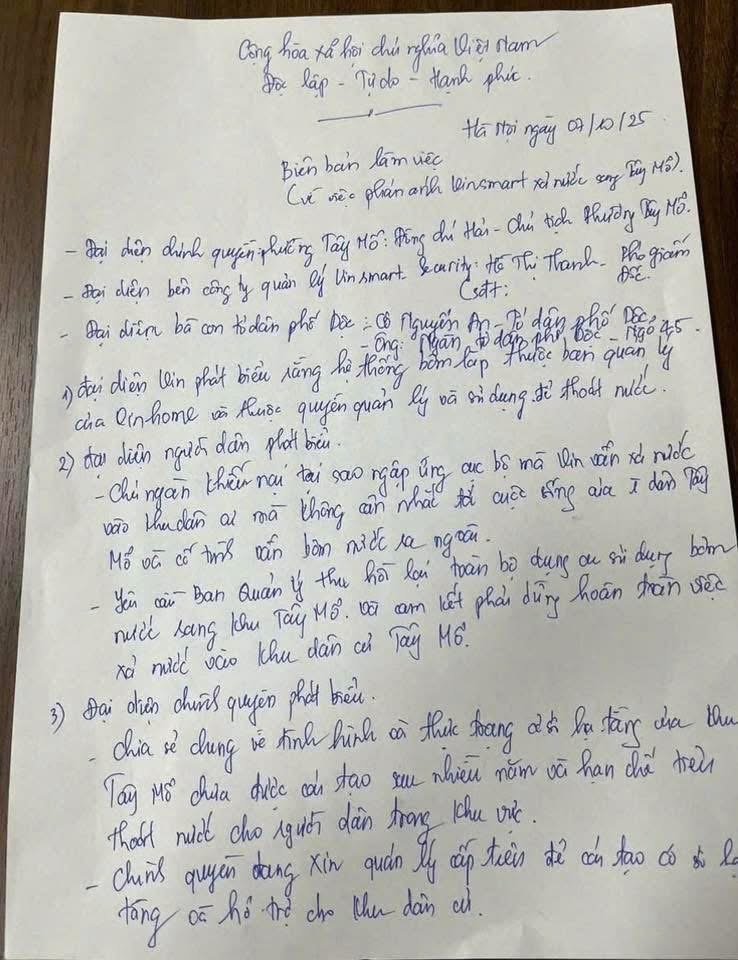 Cộng hòa xã hội chủ nghĩa Việt Nam
Độc lập - Tự do - Hạnh phúc.
Hà Nội ngày 07/10/25
Biên bản làm việc
(về việc phản ánh Vinsmart xả nước sang Tây Mỗ).
- Đại diện chính quyền phường Tây Mỗ: Đồng chí Hải - Chủ tịch Phường Tây Mỗ.
- Đại diện bên công ty quản lý Vinsmart Security: Hồ Thị Thanh - Phó giám đốc.
(sđt:
- Đại diện bà con tổ dân phố Dộc: Cô Nguyễn An - Tổ dân phố Dộc.
- Ông: Ngân tổ dân phố Dộc - Ngõ 45.
1) đại diện Vin phát biểu rằng hệ thống bơm lắp thuộc ban quản lý
của Vinhome và thuộc quyền quản lý và sử dụng để thoát nước.
2) đại diện người dân phát biểu.
- Chú ngân khiếu nại tại sao ngập úng cục bộ mà Vin vẫn xả nước
vào khu dân cư mà không cân nhắc tới cuộc sống của dân Tây
Mỗ và cố tình vẫn bơm nước ra ngoài.
- Yêu cầu Ban Quản lý thu hồi lại toàn bộ dụng cụ sử dụng bơm
nước sang khu Tây Mỗ. Và cam kết phải dừng hoàn toàn việc
xả nước vào khu dân cư Tây Mỗ.
3) Đại diện chính quyền phát biểu.
- Chia sẻ chung về tình hình và thực trạng cơ sở hạ tầng của khu
Tây Mỗ chưa được cải tạo sau nhiều năm và hạn chế trên
thoát nước cho người dân trong khu vực.
- Chính quyền đang xin quản lý cấp trên để cải tạo cơ sở hạ
tầng và hỗ trợ cho khu dân cư.